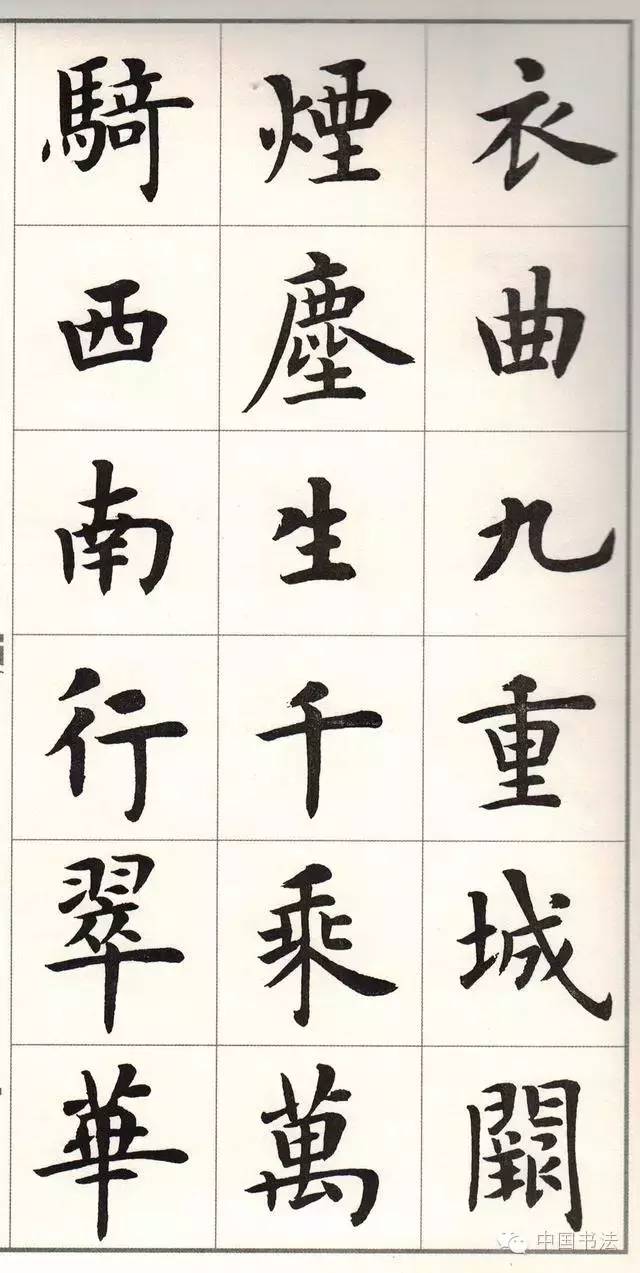 衣曲九重城闕
煙塵生千乘萬
騎西南行翠華
中国书法